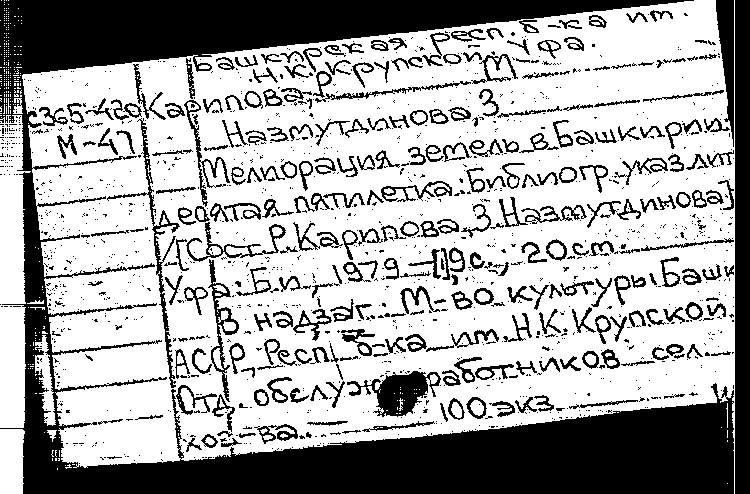 Башкирская респ. б-ка им.
Н.К. Крупской. Уфа.
с365-420 Карипова, Р М
М-47 Назмутдинова, З
Мелиорация земель в Башкирии:
десятая пятилетка: Библиогр. указ. лит
/[Сост. Р. Карипова, З. Назмутдинова]
Уфа: Б.и., 1979 –[1]9 с., 20 см.
В надзаг.: М-во культуры Башк
АССР, Респ. б-ка им. Н.К. Крупской.
Отд. обслуж работников сел.
хоз-ва. – 100 экз.